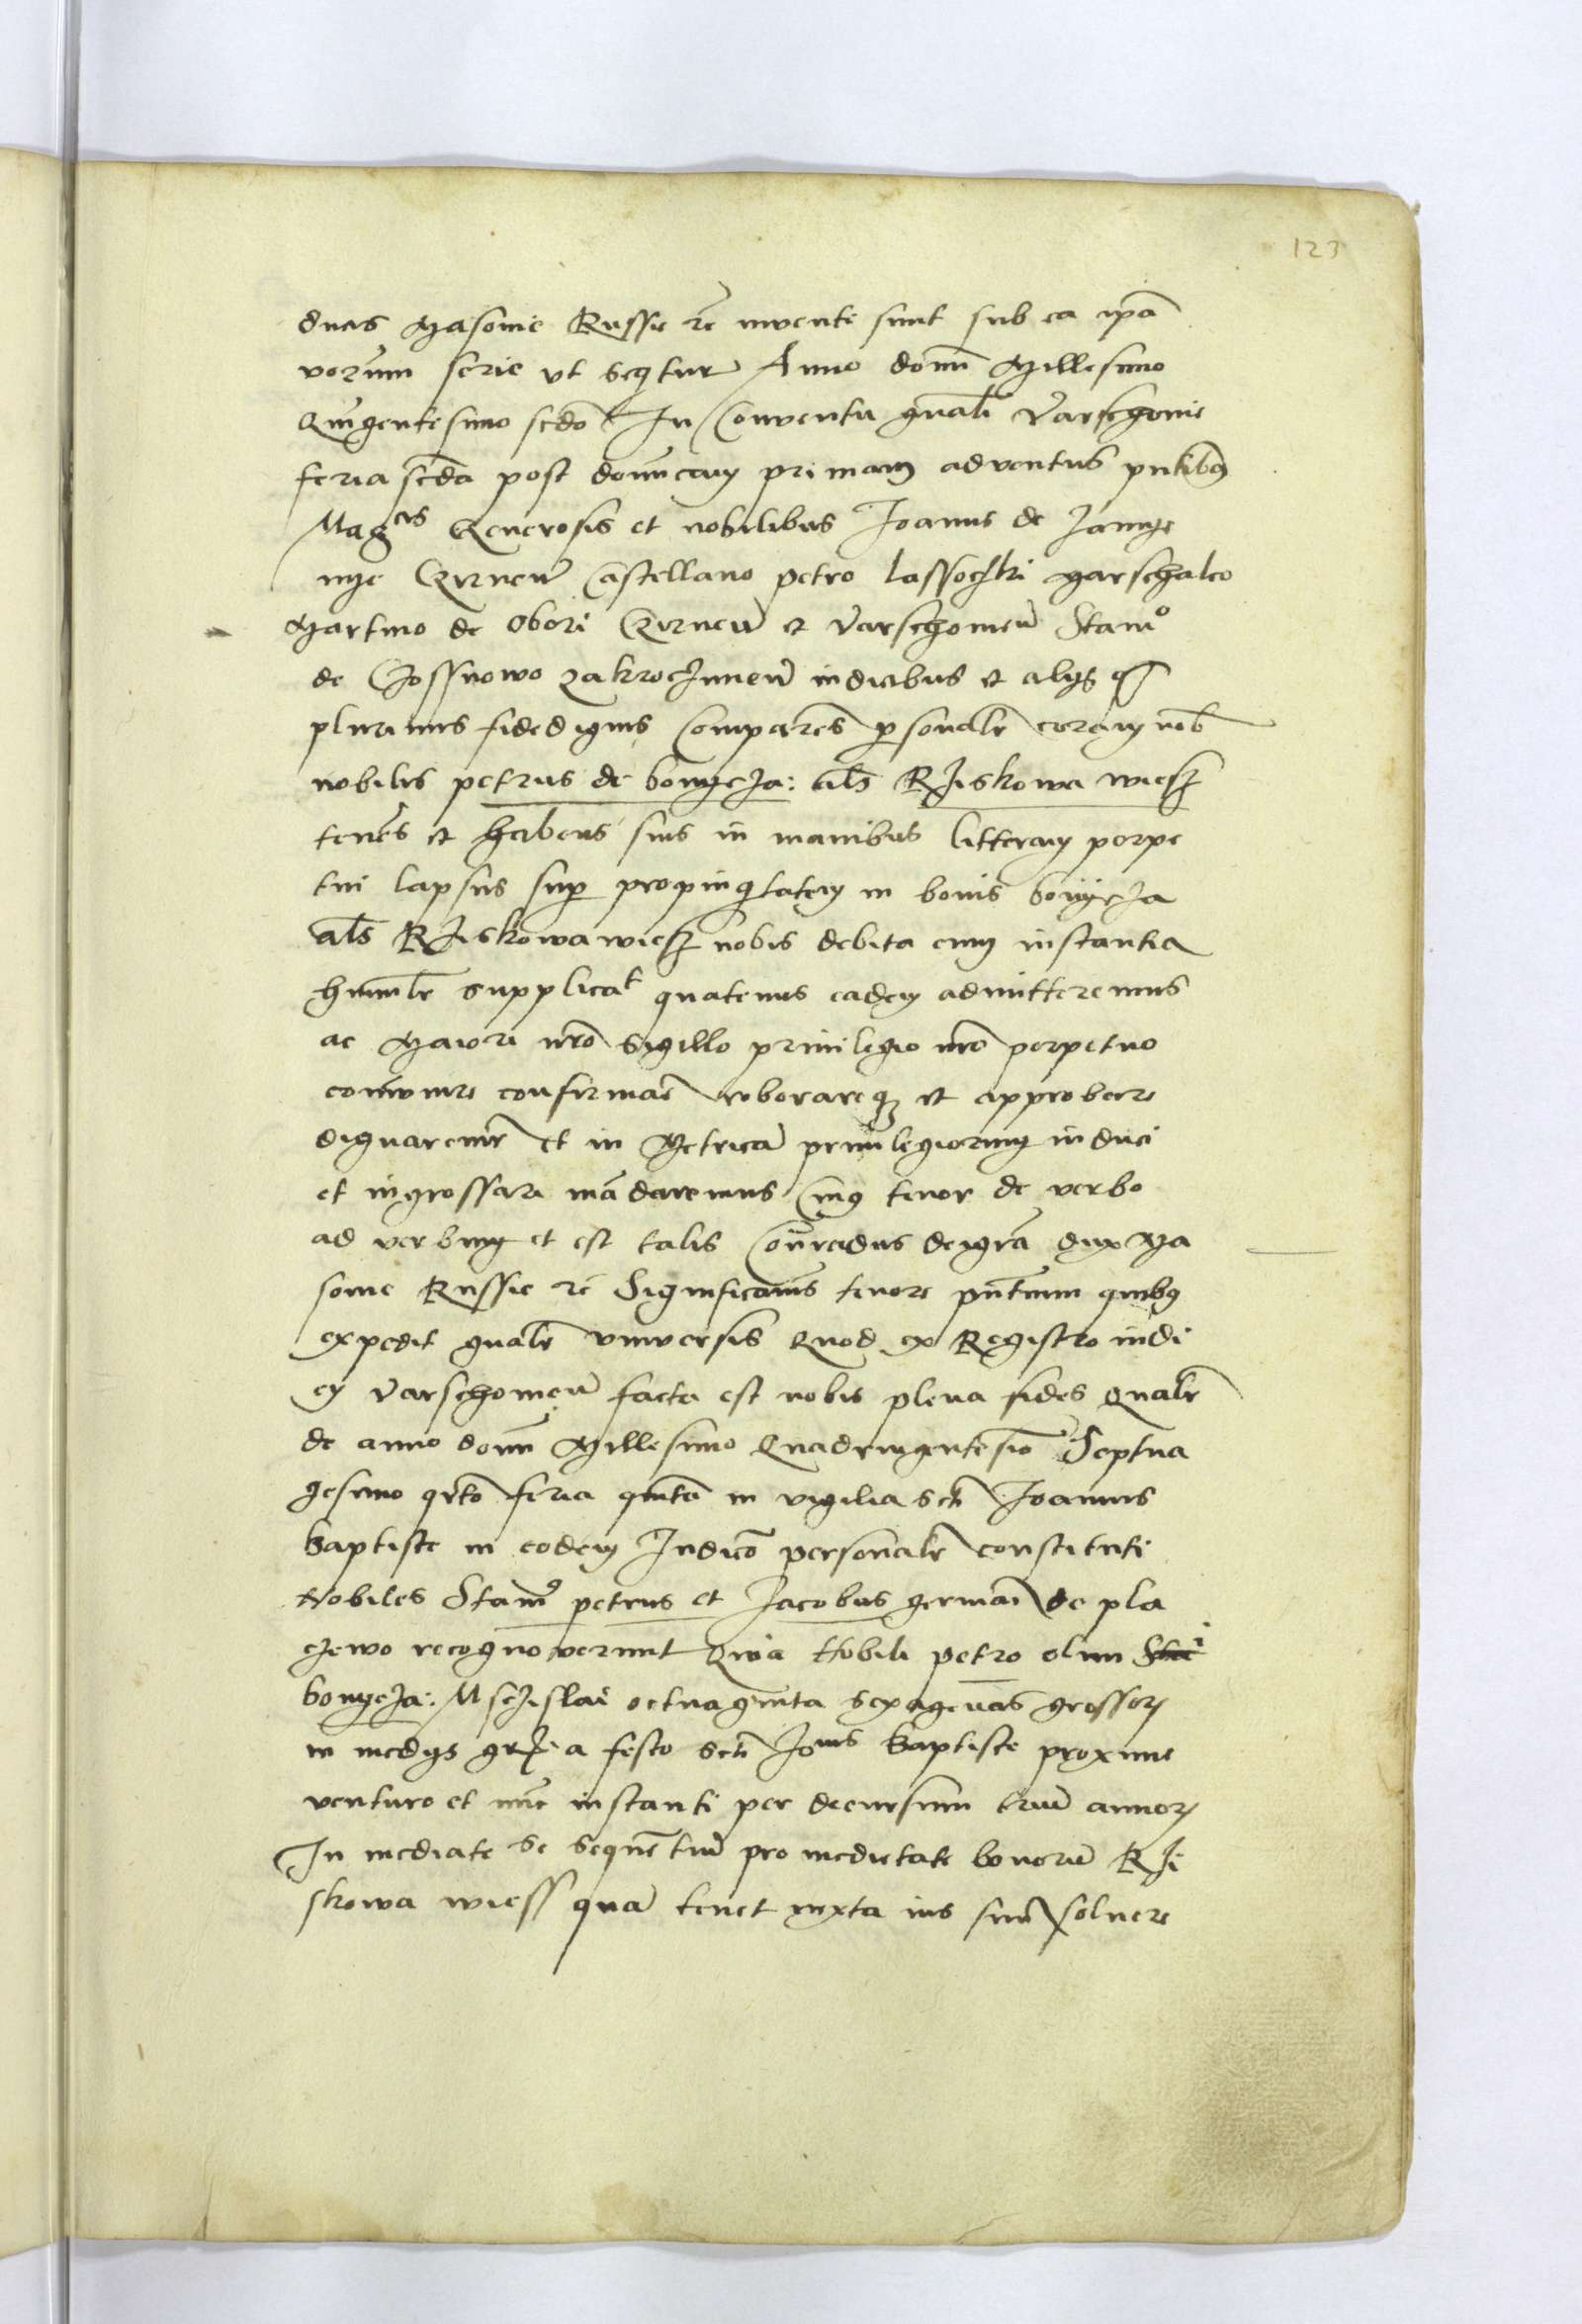 123
ducis Masovie Russie rc̄ invente sunt sub ea ip̄a
verūm serie vt seqitur Anno domī Millesimo
Quīgentesimo scdo In Conventu gn̄ali Varschovie
feria scda post domīcam primam adventus pn̄tibus
Magcis Generosis et nobilibus Joannis de
Cirnen̄ Castellano petro lassoczki Marschalco
Martino de Obori Cirnen̄ et Varschovien̄ Stanio
de Cossnowo zakroczimien̄ iudicibus et alys
plurimis fidedignis Comparēs personalr̄ coram nob̄
nobilis petrus de bonycza: als̄ Rziskowa wiesz
tenēs et habens suis in manibus litteram perpe
tui lapsus sup propinqitatem in bonis bonycza
als̄ Rziskowawiesz nobis debita cum instantia
humilr̄ supplicat quatenus eadem admitteremus
ac Maiori nr̄o sigillo privilegio nr̄o perpetuo
com̄unire confirmar̄ roborareqz et approbare
dignaremr̄ et in Metricā privilegiorum induci
et ingrossari mādaremus Cuius tenor de verbo
ad verbum et est talis Con̄radus dei gr̄a dux Ma
sovie Russie rc̄ Significam̄s tenore pn̄tium quibus
expedit gn̄alr̄ vniversis Quod ex Registro iudi
cy Varschovien̄ facta est nobis plena fides Qualr̄
de anno domī Millesimo Quadringentesīo Septua
gesimo qrto feria quīta in vigilia scti Joannis
baptiste in eodem Iudicō personalr̄ constituti
Nobiles Stanis petrus et Jacobus germāi de pla
czewo recognoverunt Quia Nobili petro olim
bonycza: Msczislai octuagīnta sexagenas grossorz
in medys a festo scti Jonis baptiste proxime
venturo et nūc instanti per decursum triū annorz
In mediate se sequētiū pro medietate bonorū Rzi
skowa wiess quā tenet iuxta ius suū solvere